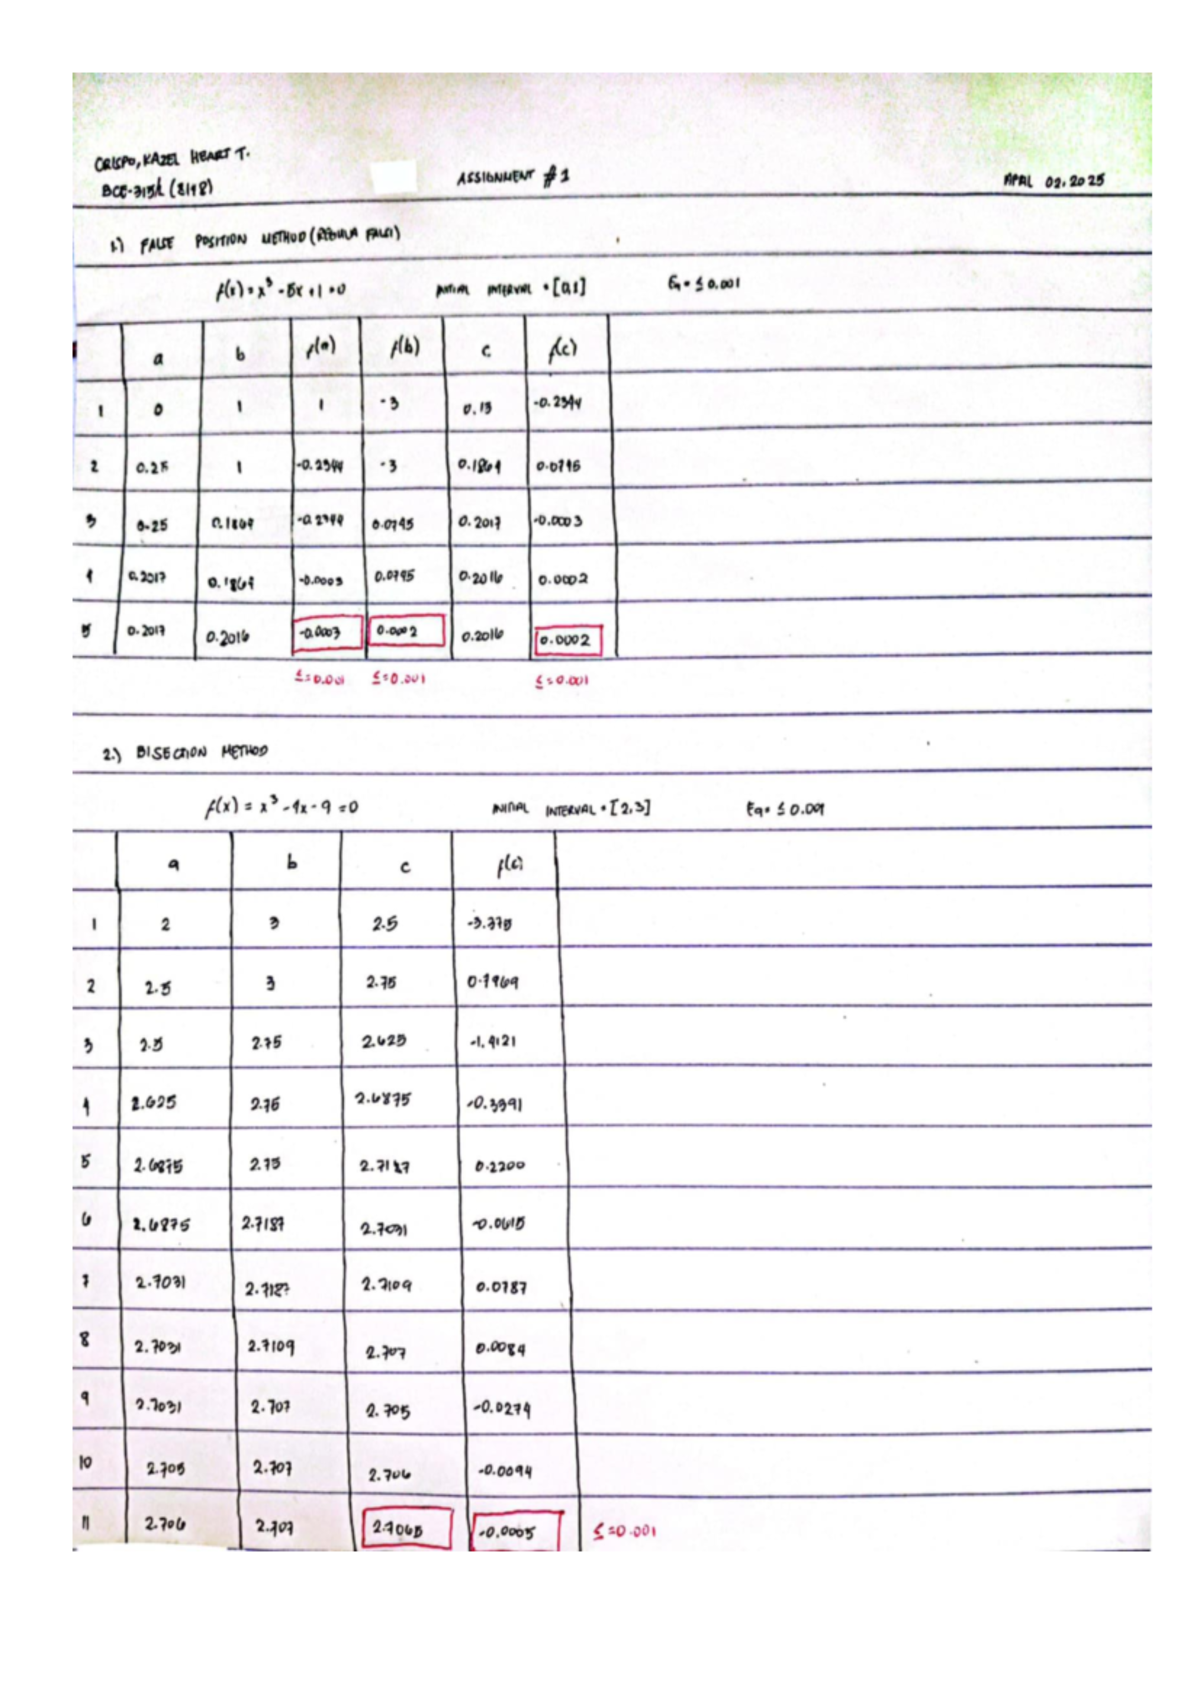 CRISPO, KAZEL HEART T.
ASSIGNMENT #1
APRIL 02, 2025
1.) FALSE POSITION METHOD (REGULA FALSI)
f(x) = x³ - 5x + 1 = 0 INITIAL INTERVAL = [0,1] Ea = ≤ 0.001
a b f(a) f(b) c f(c)
1 0 1 1 -3 -0.2344
2 0.25 1 -0.2344 -3 0.1869 0.0745
3 0.25 0.1869 -0.2344 0.0745 0.2017 -0.0003
4 0.2017 0.1869 -0.0003 0.0745 0.2016 0.0002
5 0.2017 0.2016 -0.0003 0.0002 0.2016 0.0002
≤=0.001 ≤=0.001 ≤=0.001
2.) BISECTION METHOD
f(x) = x³ - 4x - 9 = 0 INITIAL INTERVAL = [2,3] Ea = ≤ 0.001
a b c f(c)
1 2 3 2.5 -3.375
2 2.5 3 2.75 0.7969
3 2.5 2.75 2.625 -1.4121
4 2.625 2.75 2.6875 -0.3391
5 2.6875 2.75 2.7187 0.2200
6 2.6875 2.7187 2.7031 -0.0615
7 2.7031 2.7187 2.7109 0.0787
8 2.7031 2.7109 2.707 0.0084
9 2.7031 2.707 2.705 -0.0274
10 2.705 2.707 2.706 -0.0094
11 2.706 2.707 2.7065 -0.0005 ≤=0.001